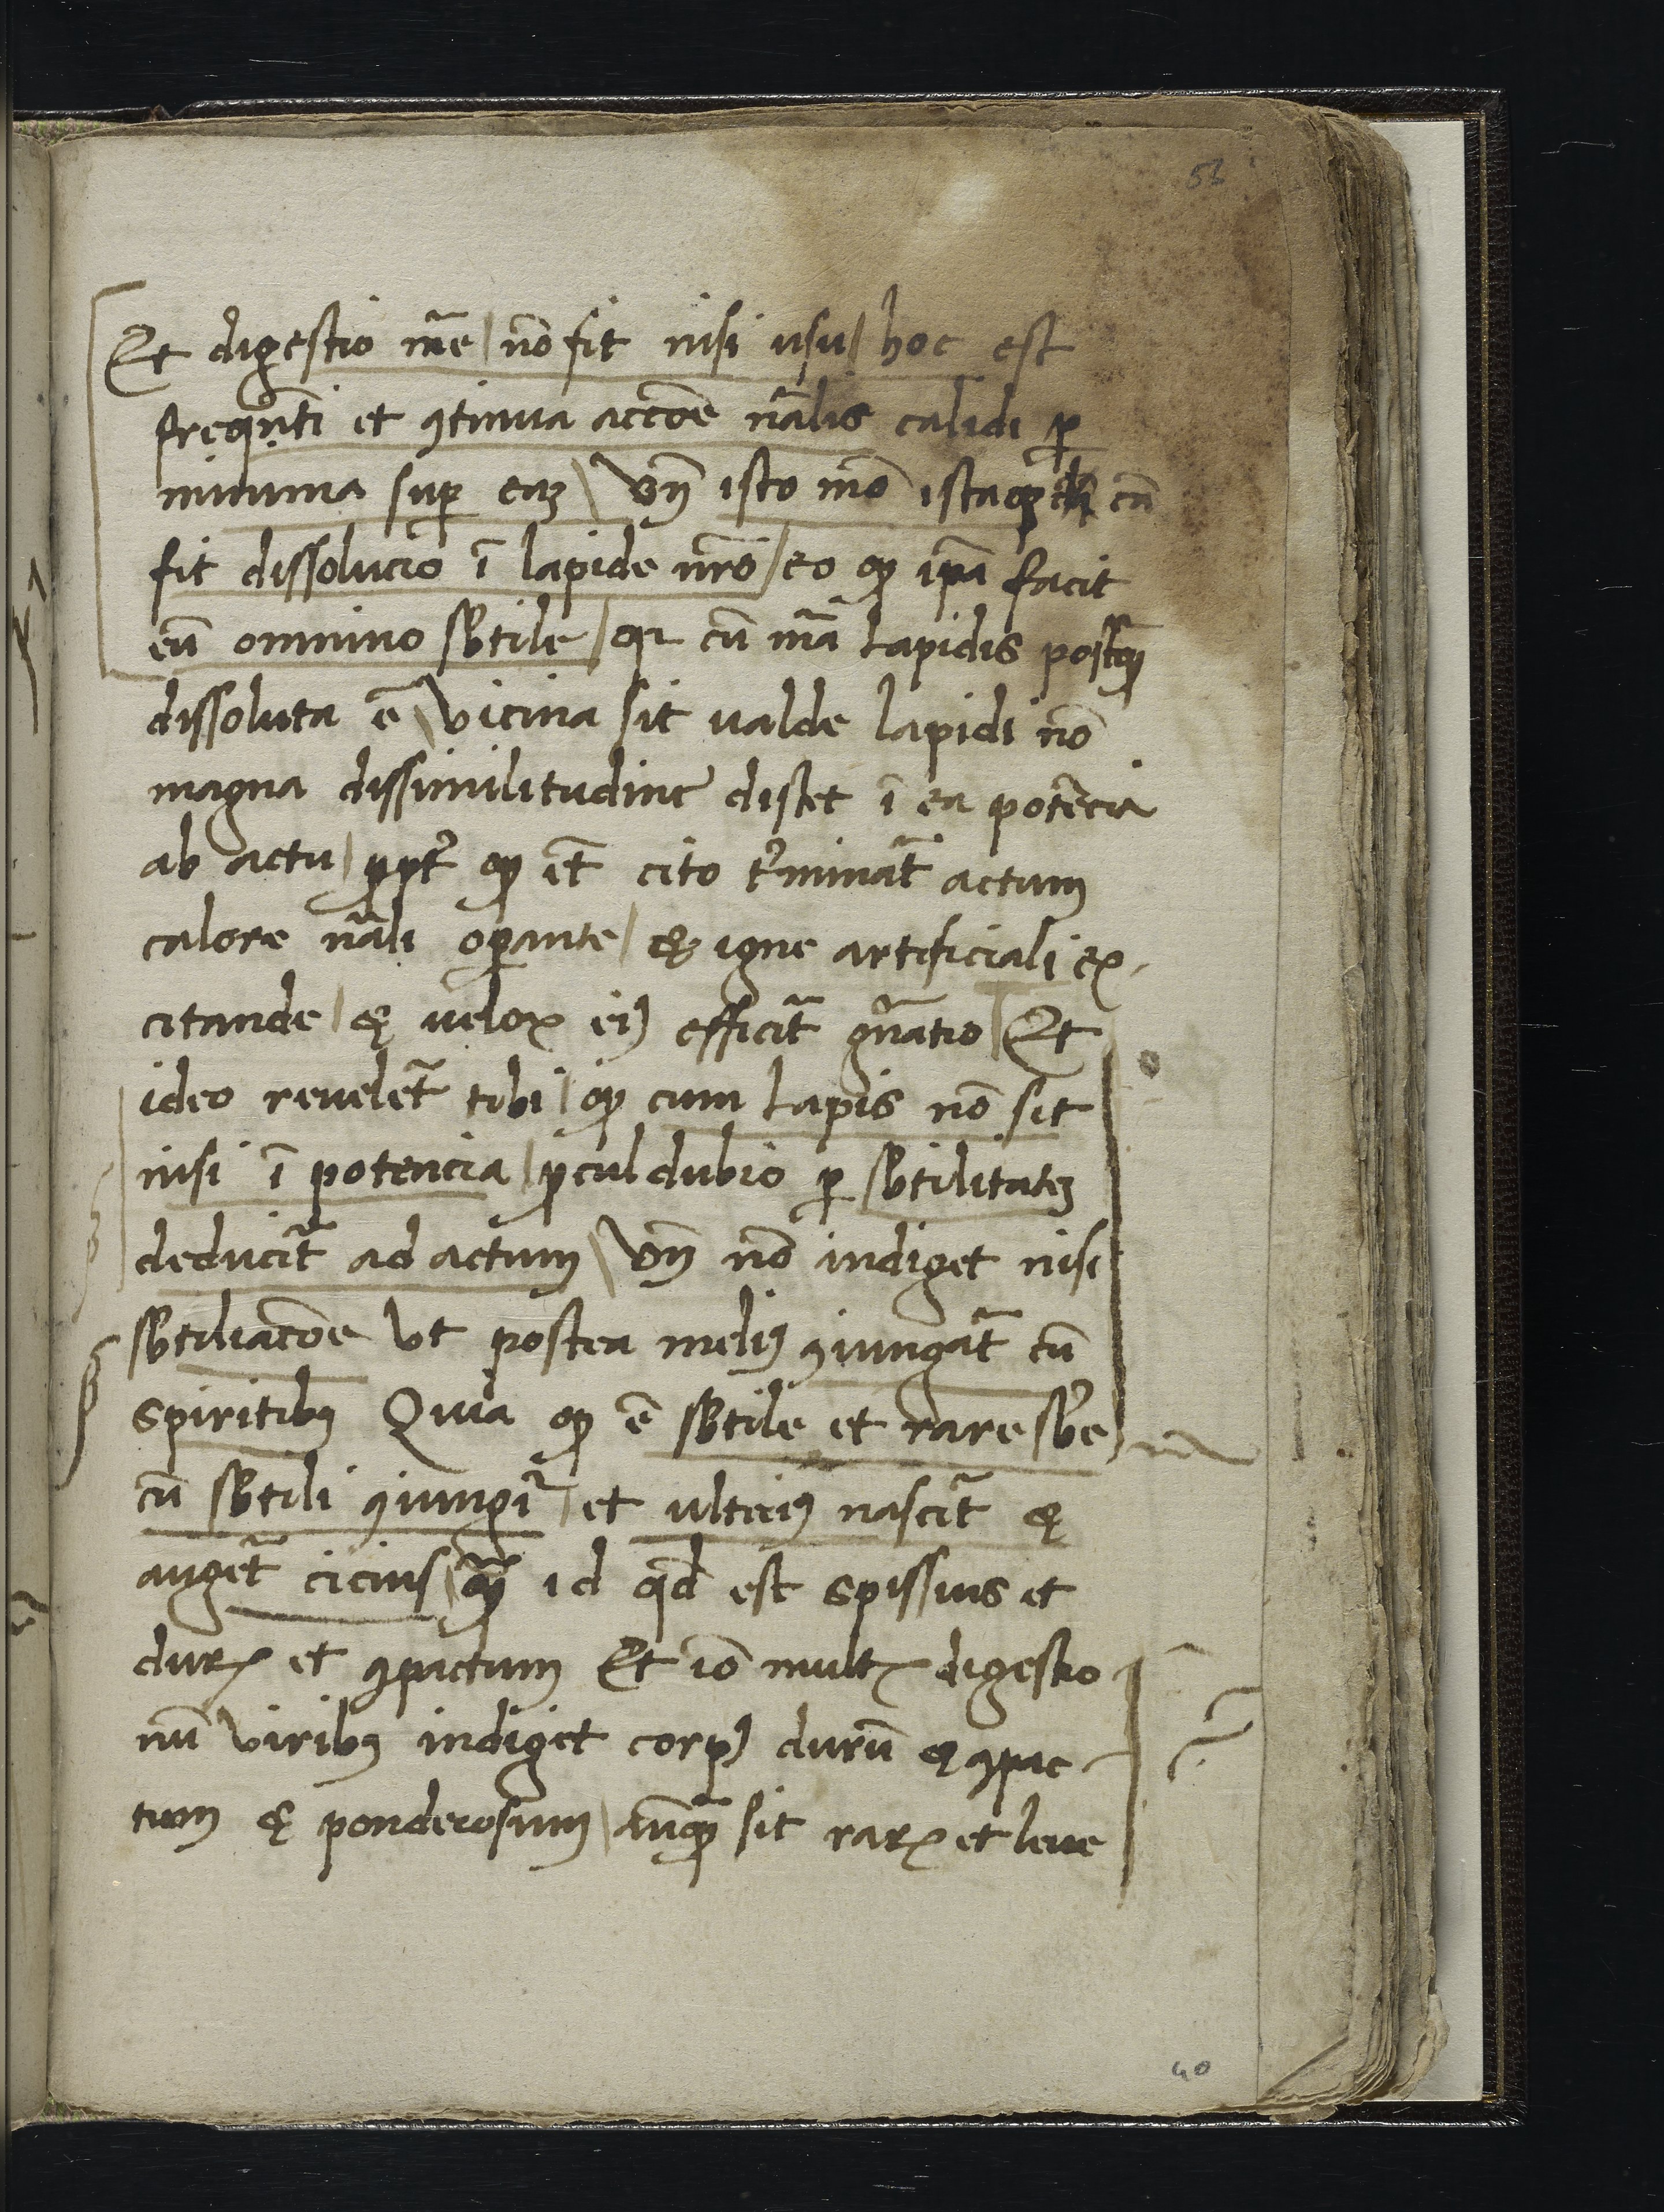 53
Et digestio mãe / nõ fit nisi usu / hoc est
freqũti et ꝯtinua accõe nãlis calidi ꝑ
minima suꝑ eaꝫ \ Vñ isto mõ cũ
fit dissolucio ĩ lapide nrõ / eo ꝙ ip̃a facit
eũ omnino sbtile / qꝛ cũ mã Lapidis postꝙ̃
dissoluta ẽ \ vicina sit valde lapidi nõ
magna dissimilitudine distet ĩ ea potẽcia
ab actu / ꝓpt̃ ꝙ et̃ cito t̃minat̃ actum
calore nãli oꝑante / & igne artificiali ex
citande / & velox eiꝰ efficit̃ gñatio / Et
ideo revelet̃ tibi / ꝙ cum Lapis nõ sit
nisi ĩ potencia / ꝓculdubio ꝑ sbtilitatẽ
deducit̃ ad actum \ Vñ nõ indiget nisi
sbtiliacõe Vt postea meliꝰ ꝯiungat̃ cũ
spiritibꝫ Quia ꝙ ẽ sbtile et rare sbe
cũ sbtili ꝯiungit̃ / et ulteriꝰ nascit̃ &
auget̃ cicius \ ꝙ̃ id qd̃ est spissius et
durꝝ et ꝯpactum Et iõ multꝝ digestio
nũ viribꝫ indiget corpꝰ durũ & ꝯpac
tum & ponderosum \ anꝙ̃ sit rarꝝ et leve
40